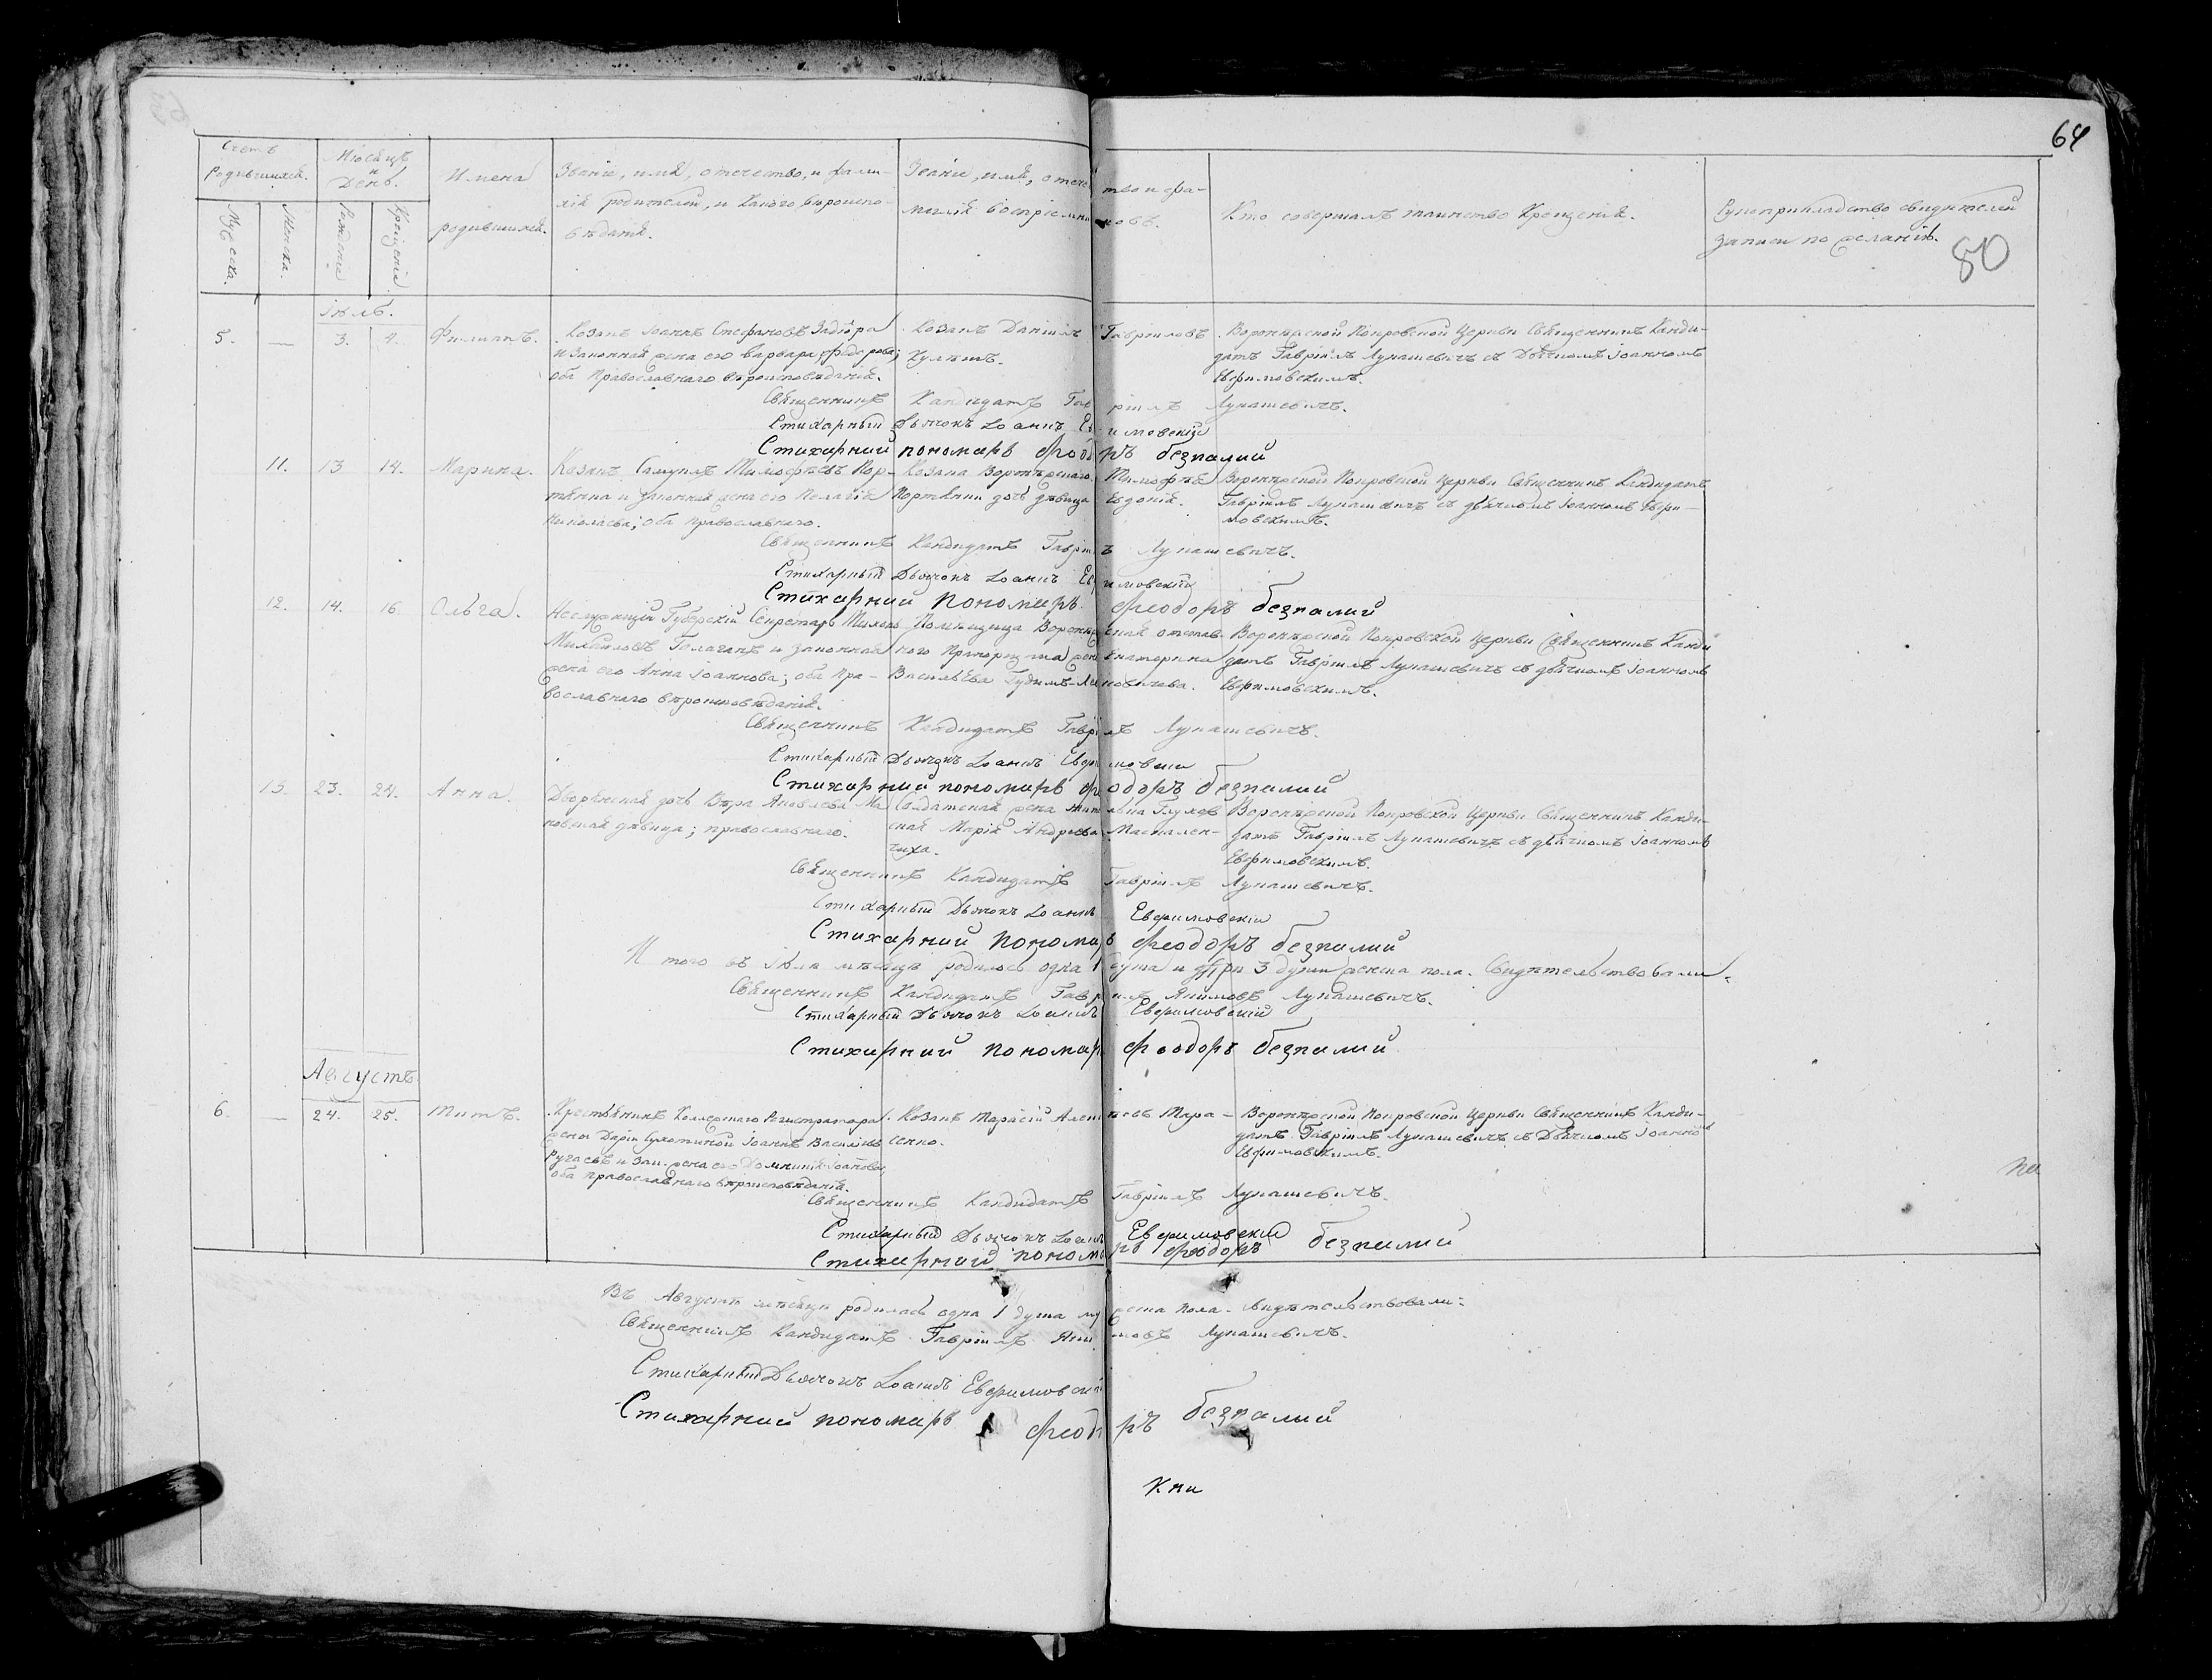 64
80
Счетъ родившихся.
Мѣсяцъ и День.
Имена родившихся.
Званіе, имя, отечество, и фамилія родителей, и какого вѣроисповѣданія.
Званіе, имя, отечество и фамилія воспріемниковъ.
Кто совершалъ таинство Крещенія.
Рукоприкладство свидѣтелей записи по желанію.
Мужеска.
Женска.
Рожденія
Крещенія
Іюль.
5. — 3. 4. Филиппъ.
Козакъ Іоаннъ Стефановъ
и законная жена его Варвара Федорова;
оба Православнаго вѣроисповѣданія.
Козакъ Даніилъ Гавриловъ
Кулѣшъ.
Воронѣжской Покровской Церкви Священникъ Канди-
датъ Гавріилъ Лукашевичъ съ Дьячкомъ Іоанномъ
Евфимовскимъ.
Священникъ Кандидатъ Гавріилъ Лукашевичъ.
Стихарный Дьячокъ Іоаннъ Евфимовскій
Стихарний пономарь Феодоръ безпалий
11. 13 14. Марина.
Козакъ Самуилъ Тимофѣевъ Пор-
тянка и законная жена его Пелагія
Николаева; оба православнаго.
Козака Воронѣжскаго Тимофѣя
Портянки дочь дѣвица Евдокія.
Воронѣжской Покровской Церкви Священникъ Кандидатъ
Гавріилъ Лукашевичъ съ дьячкомъ Іоанномъ Евфи-
мовскимъ.
Священникъ Кандидатъ Гавріилъ Лукашевичъ.
Стихарный Дьячокъ Іоаннъ Евфимовскій
Стихарний пономарь Феодоръ безпалий
12. 14. 16. Ольга.
Неслужащій Губерскій Секретарь Тихонъ
Михайловъ Галаганъ и законная
жена его Анна Іоаннова; оба Пра-
вославнаго вѣроисповѣданія.
Помѣщица Воронѣжская отстав-
ного Прапорщика жена Екатерина
Васильева
Воронѣжской Покровской Церкви Священникъ Канди
датъ Гавріилъ Лукашевичъ съ дьячкомъ Іоанномъ
Евфимовскимъ.
Священникъ Кандидатъ Гавріилъ Лукашевичъ.
Стихарный Дьячокъ Іоаннъ Евфимовскій
Стихарний пономарь Феодоръ безпалий
13. 23. 24. Анна.
Дворянская дочь Вѣра Яковлева Ма
новская дѣвица; православнаго.
Солдатская жена жителька Глухов
ская Марія Андреева Маспален-
чиха.
Воронѣжской Покровской Церкви Священникъ Канди-
датъ Гавріилъ Лукашевичъ съ дьячкомъ Іоанномъ
Евфимовскимъ.
Священникъ Кандидатъ Гавріилъ Лукашевичъ.
Стихарный Дьячокъ Іоаннъ Евфимовскій
Стихарний пономарь Феодоръ безпалий
И того въ Іюлѣ мѣсяцѣ родилось одна 1 душа и три 3 души женска пола. Свидѣтельствовали:
Священникъ Кандидатъ Гавріилъ Якимовъ Лукашевичъ.
Стихарный Дьячокъ Іоаннъ Евфимовскій
Стихарний пономарь Феодоръ безпалий
Августъ
6. — 24. 25. Титъ.
Крестьянинъ Коллежскаго Регистратора
жены Даріи Сухотиной Іоаннъ Васильевъ
и зак. жена его Домникія Іоаннова;
оба православнаго вѣроисповѣданія.
Козакъ Тарасій Алексѣевъ Тара-
сенко.
Воронѣжской Покровской Церкви Священникъ Канди-
датъ Гавріилъ Лукашевичъ съ Дьячкомъ Іоанномъ
Евфимовскимъ.
Священникъ Кандидатъ Гавріилъ Лукашевичъ.
Стихарный Дьячокъ Іоаннъ Евфимовскій
Стихарний пономарь Феодоръ безпалий
Въ Августѣ мѣсяцѣ родилась одна 1 душа мужеска пола. Свидѣтельствовали:
Священникъ Кандидатъ Гавріилъ Якимовъ Лукашевичъ.
Стихарный Дьячокъ Іоаннъ Евфимовскій
Стихарний пономарь Феодоръ безпалий
Кни